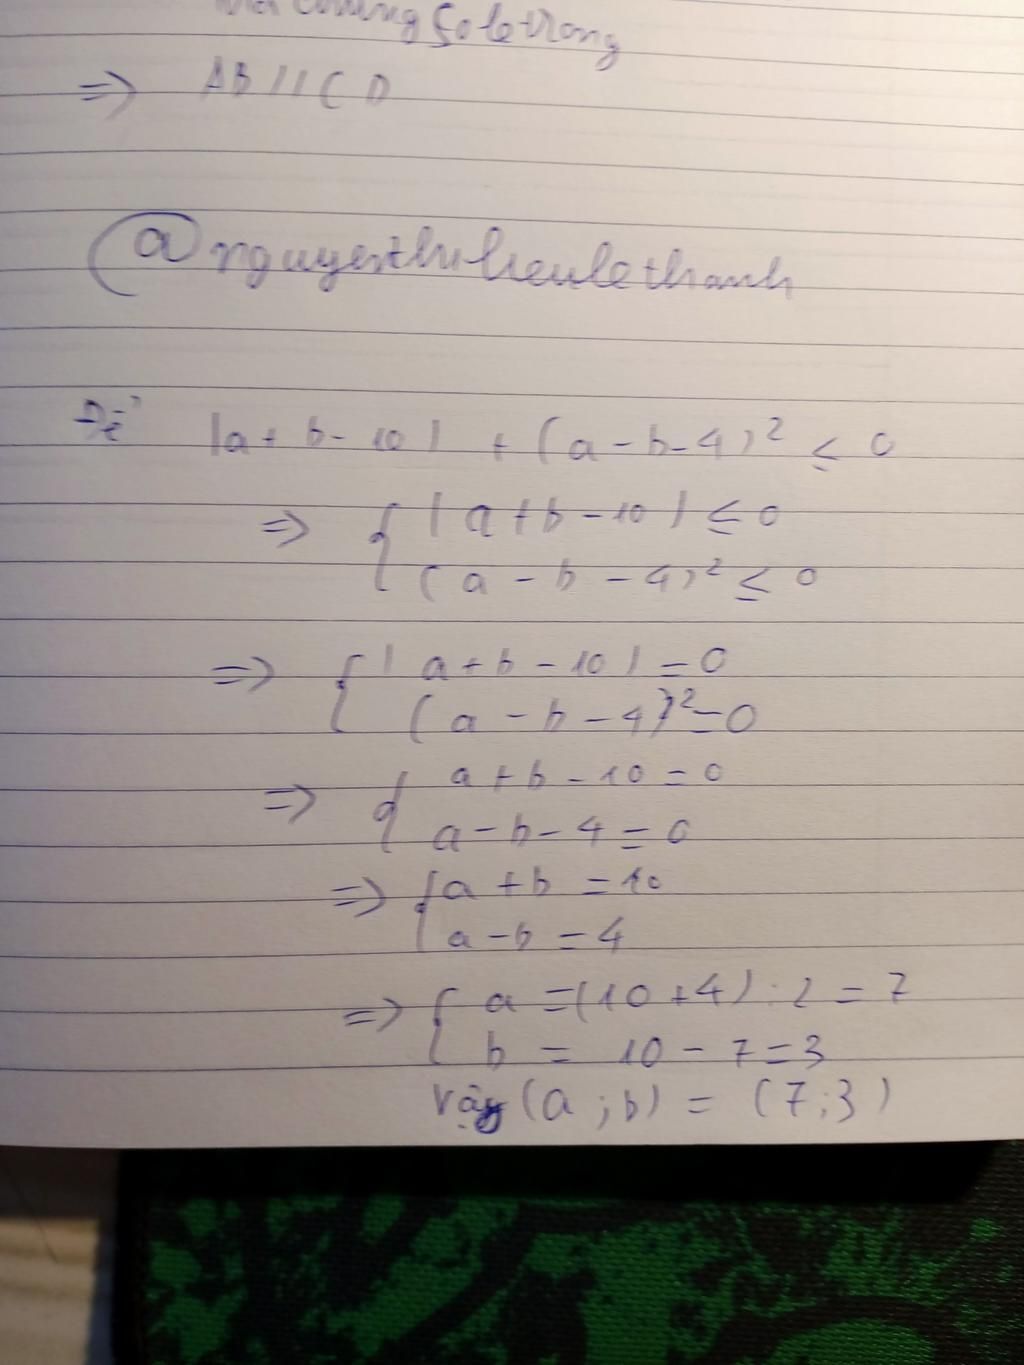 chúng so le trong
=> AB // CD
@nguyenthihieulethanh
Để |a + b - 10| + (a - b - 4)² ≤ 0
=> { |a + b - 10| ≤ 0
(a - b - 4)² ≤ 0
=> { |a + b - 10| = 0
(a - b - 4)² = 0
=> { a + b - 10 = 0
a - b - 4 = 0
=> { a + b = 10
a - b = 4
=> { a = (10 + 4) : 2 = 7
b = 10 - 7 = 3
Vậy (a ; b) = (7 ; 3)